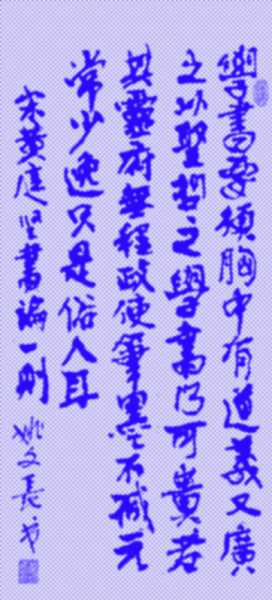 學書要須胸中有道義又廣
之以聖哲之學書乃可貴若
其靈府無程政使筆墨不減元
常少逸只是俗人耳
宋黄庭坚書論一則
姚文長书